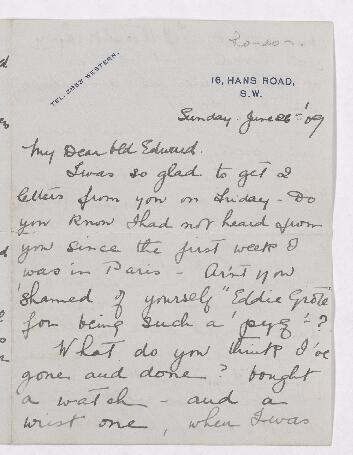 London.
TEL. 2952 WESTERN.
16, HANS ROAD,
S.W.
Sunday. June 26th '09
My Dear Old Edward.
I was so glad to get 2
letters from you on Friday - Do
you know I had not heard from
you since the first week I
was in Paris - Ain't you
'shamed of yourself "Eddie Grote"
for being such a 'pyg'-?
What do you think I've
gone and done? bought
a watch - and a
wrist one, when I was